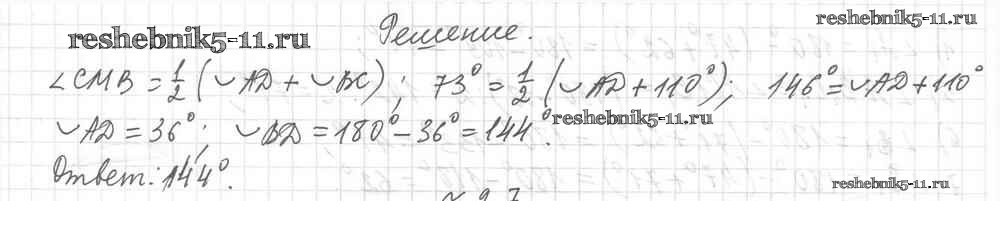 reshebnik5-11.ru
Решение.
reshebnik5-11.ru
∠CMB = 1/2 (◡AD + ◡BC); 73° = 1/2 (◡AD + 110°); 146° = ◡AD + 110°
◡AD = 36°; ◡BD = 180° - 36° = 144°.
reshebnik5-11.ru
Ответ: 144°.
reshebnik5-11.ru